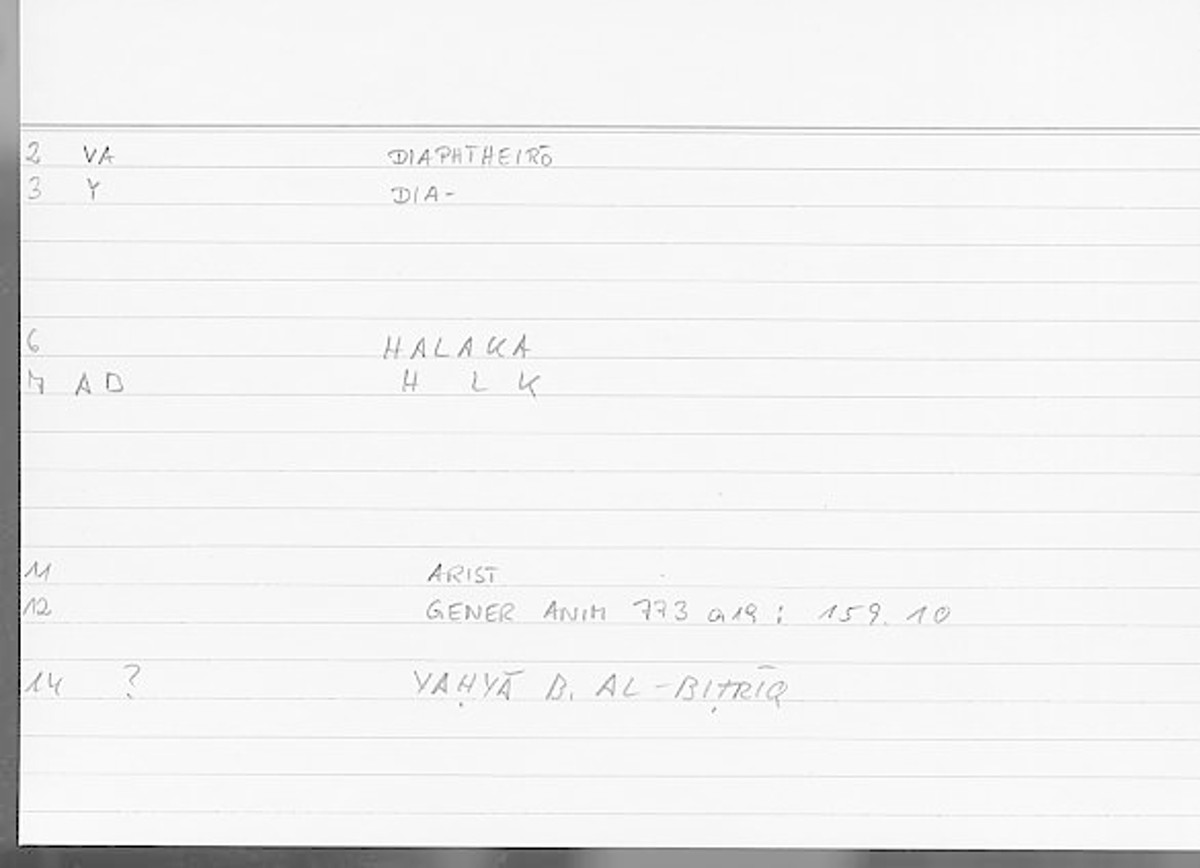 2 VA DIAPHTHEIRŌ
3 Y DIA-
6 HALAKA
7 AD H L K
11 ARIST
12 GENER ANIM 773 a19 : 159.10
14 ? YAḤYĀ B. AL-BIṬRĪQ